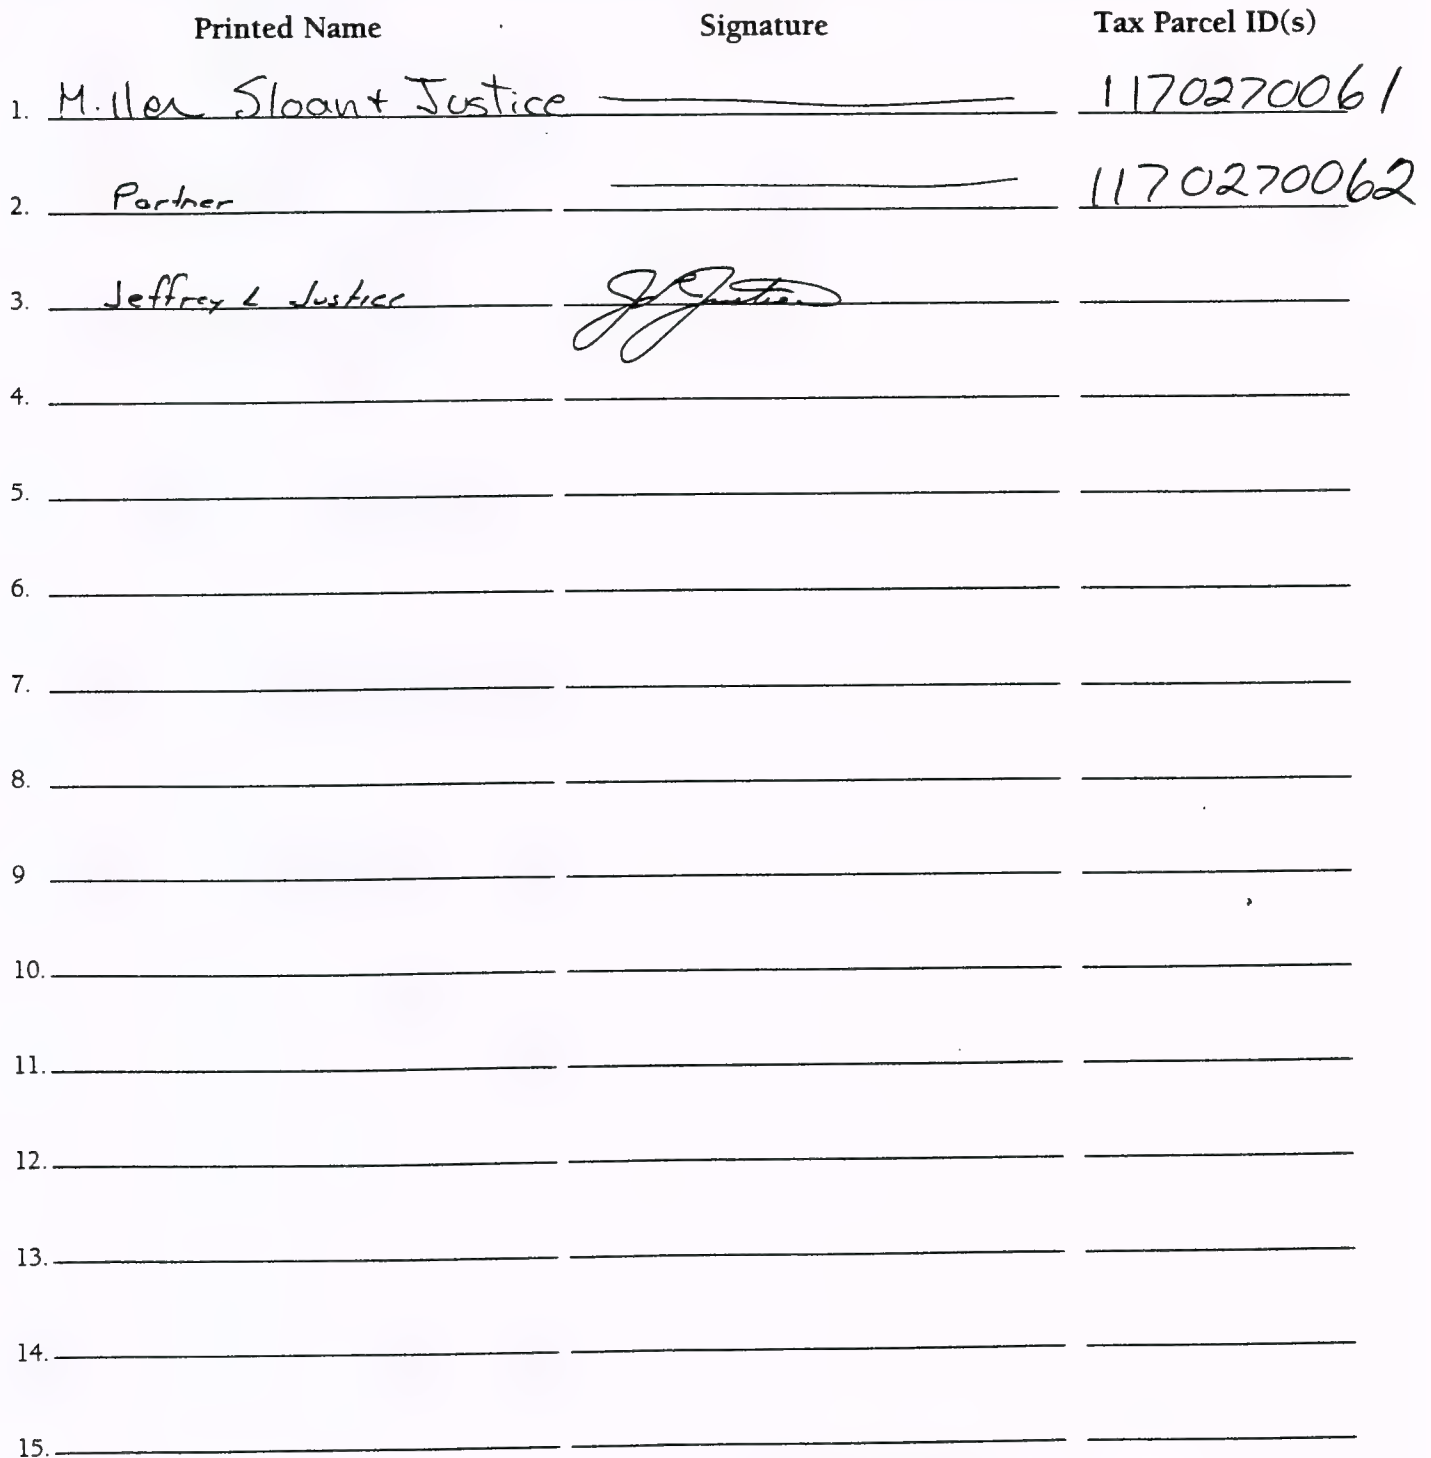 Printed Name Signature Tax Parcel ID(s)
1. Miller Sloan + Justice 1170270061
2. Partner 1170270062
3. Jeffrey L Justice
4.
5.
6.
7.
8.
9
10.
11.
12.
13.
14.
15.